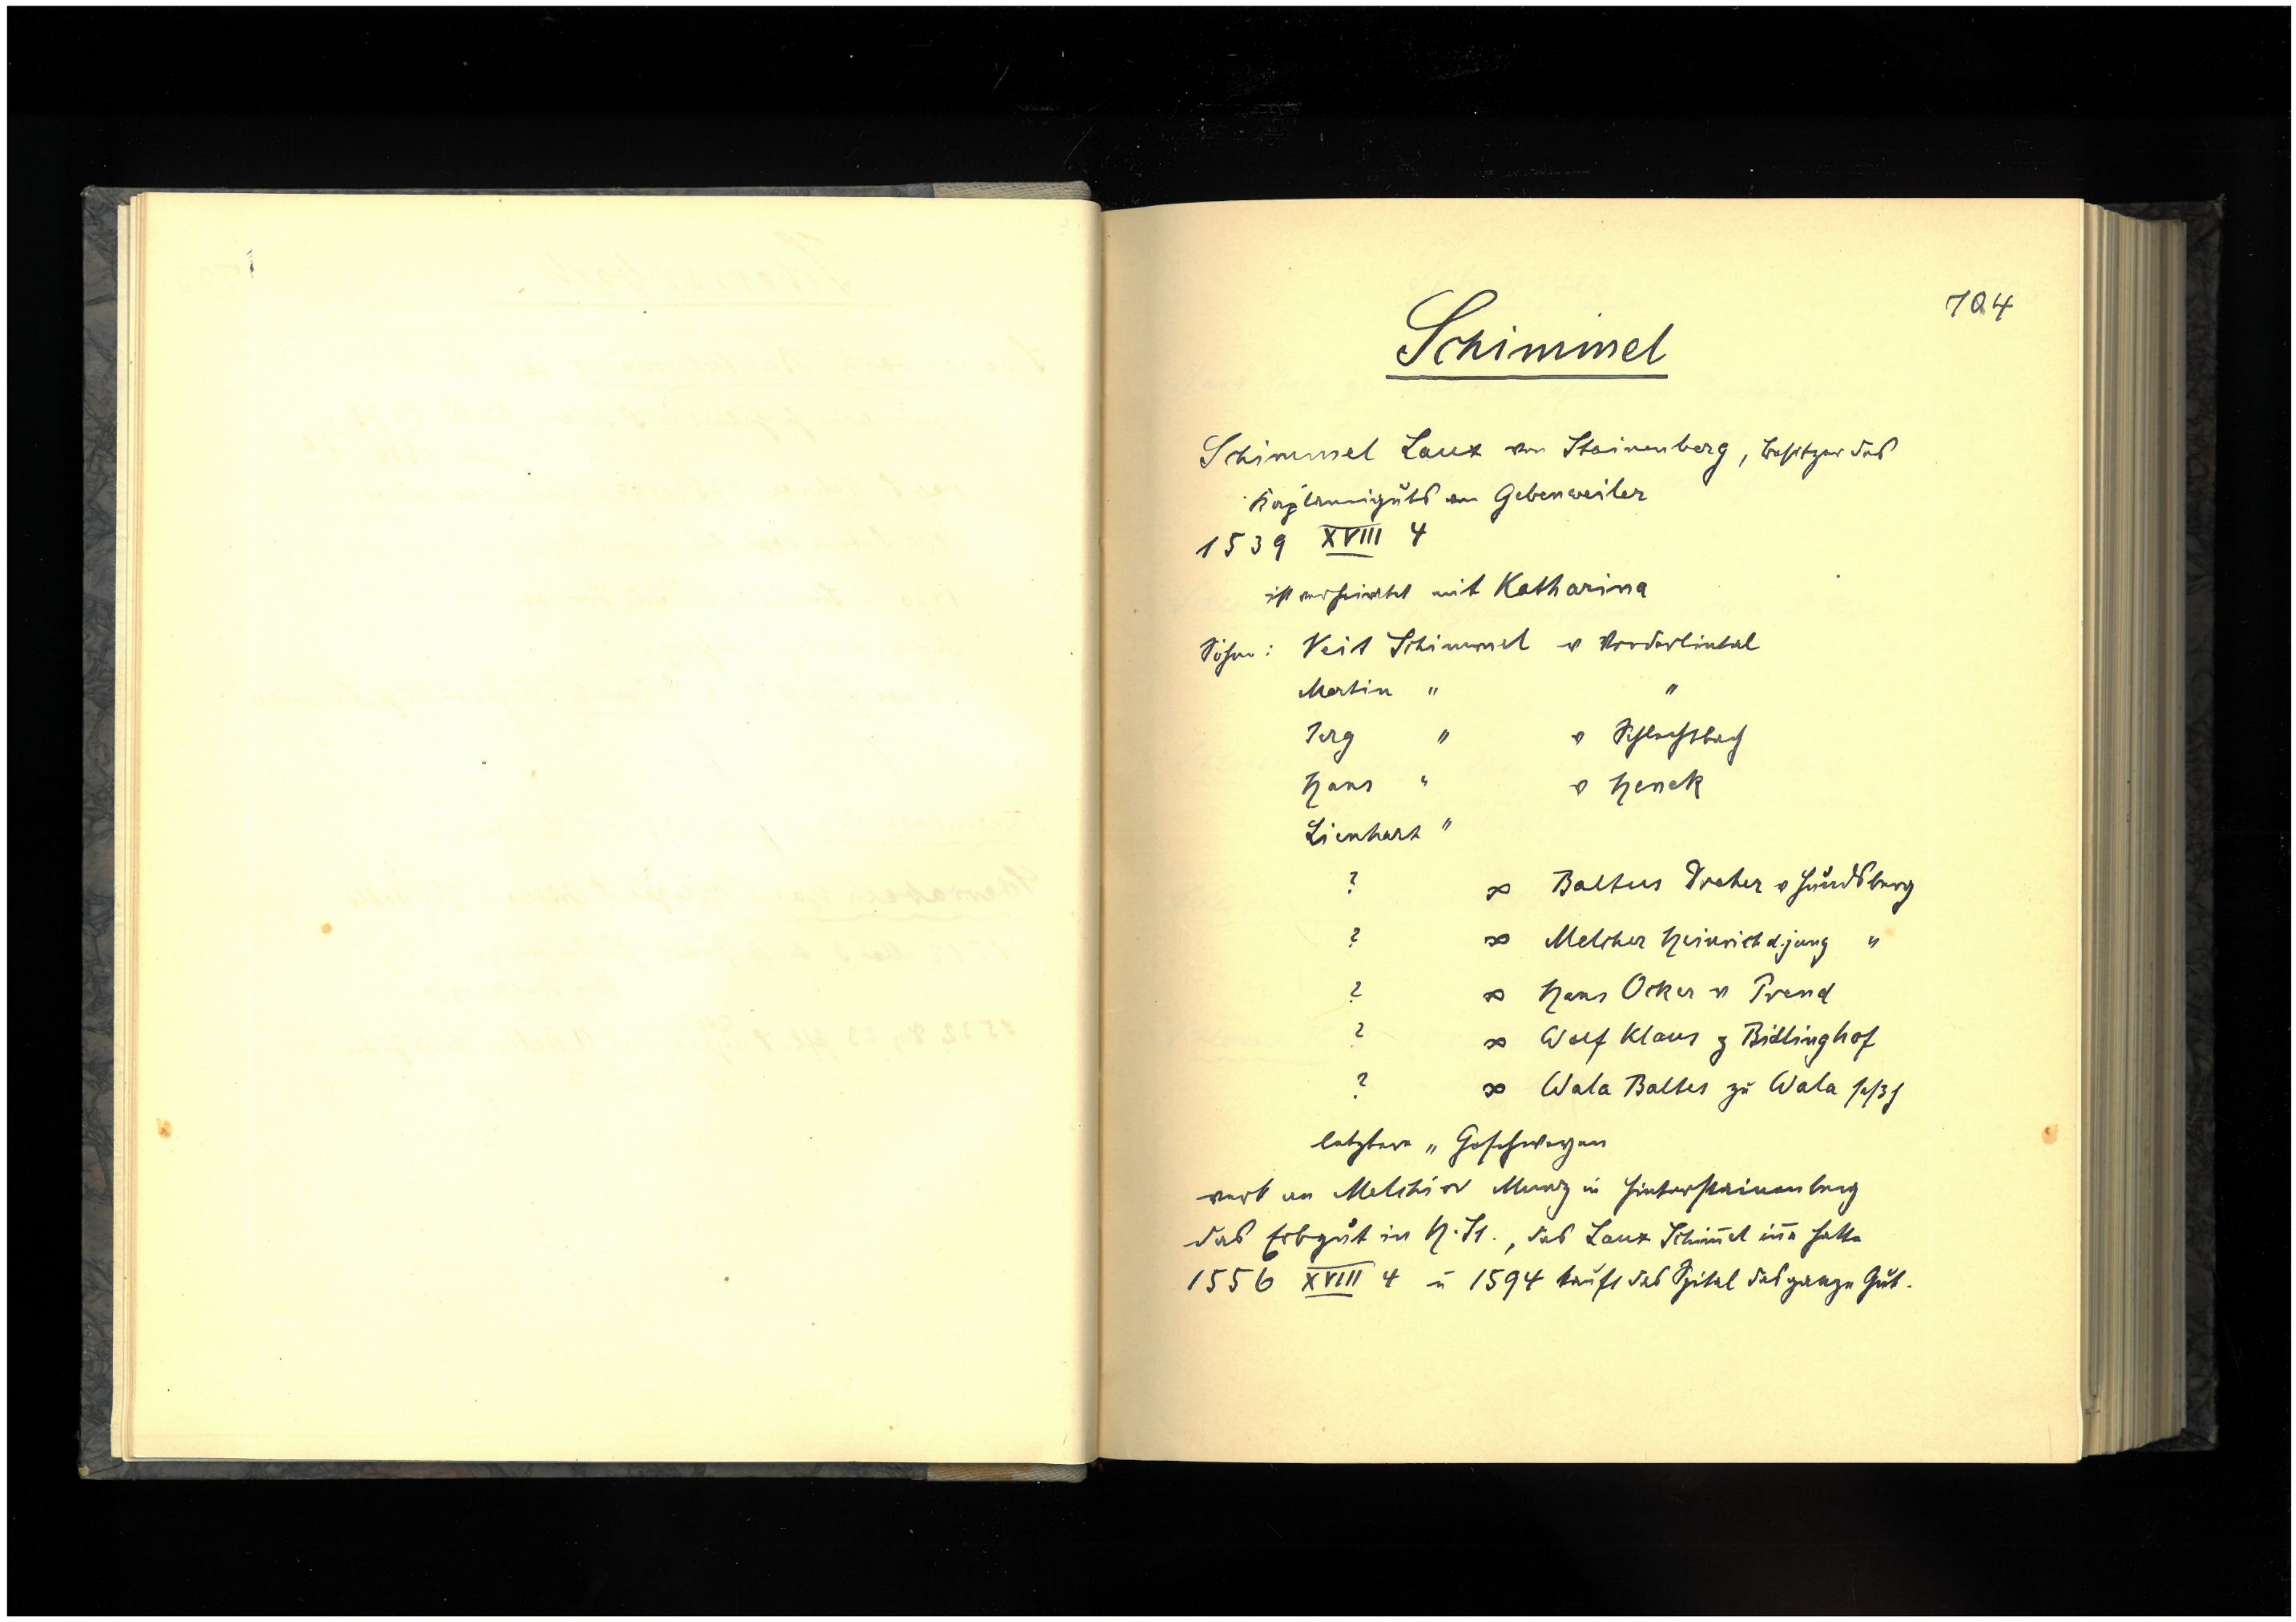 704
Schimmel
Schimmel Laux von Steinenberg, Besitzer des
Kaplaneiguts von Gebenweiler
1539 XVIII 4
ist verheiratet mit Katharina
Söhne: Veit Schimmel v Vorderlintal
Martin " "
Jerg " v Schlechtbach
Hans " v Henek
Lienhart "
? ∞ Baltus Dreher v Hundsberg
? ∞ Melcher Heinrich d. jung "
? ∞ Hans Ocker v Frend
? ∞ Wolf Klaus z Bidlinghof
? ∞ Wala Baltes zu Wala
letztere " Geschwegen
verk an Melchior Munz in Hintersteinenberg
das Erbgut in H. St., das Laux Schim̅el in̅e hatte
1556 XVIII 4 u 1594 kauft das Spital das ganze Gut.